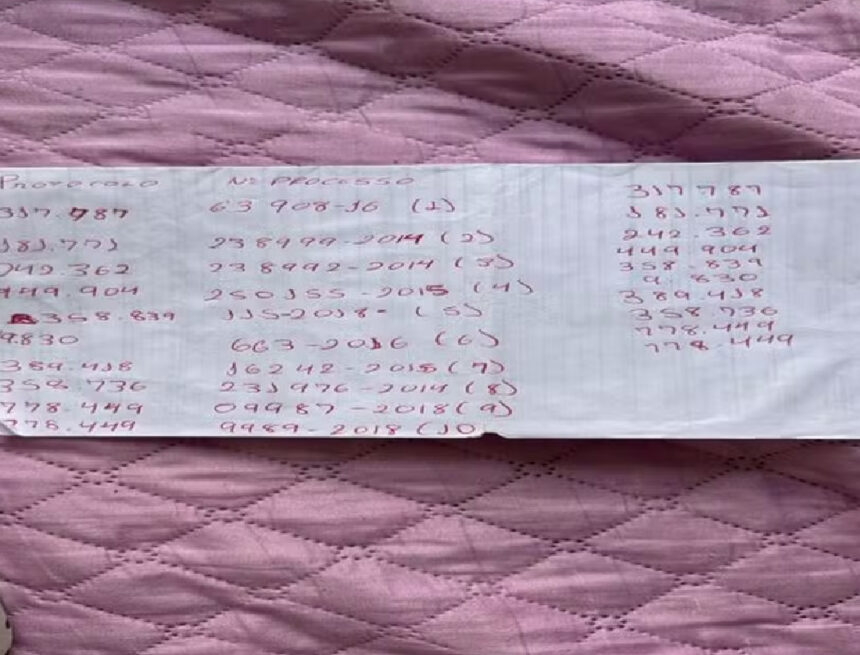 PROTOCOLO Nº PROCESSO
317.787 63908-16 (1)
181.771 238999-2014 (2)
242.362 238992-2014 (3)
449.904 250155-2015 (4)
358.839 115-2018- (5)
9.830 663-2016 (6)
389.418 16242-2015 (7)
358.736 231976-2014 (8)
778.449 09987-2018 (9)
778.449 9989-2018 (10
317 787
181.771
242.362
449.904
358.839
9.830
389.418
358.736
778.449
778.449